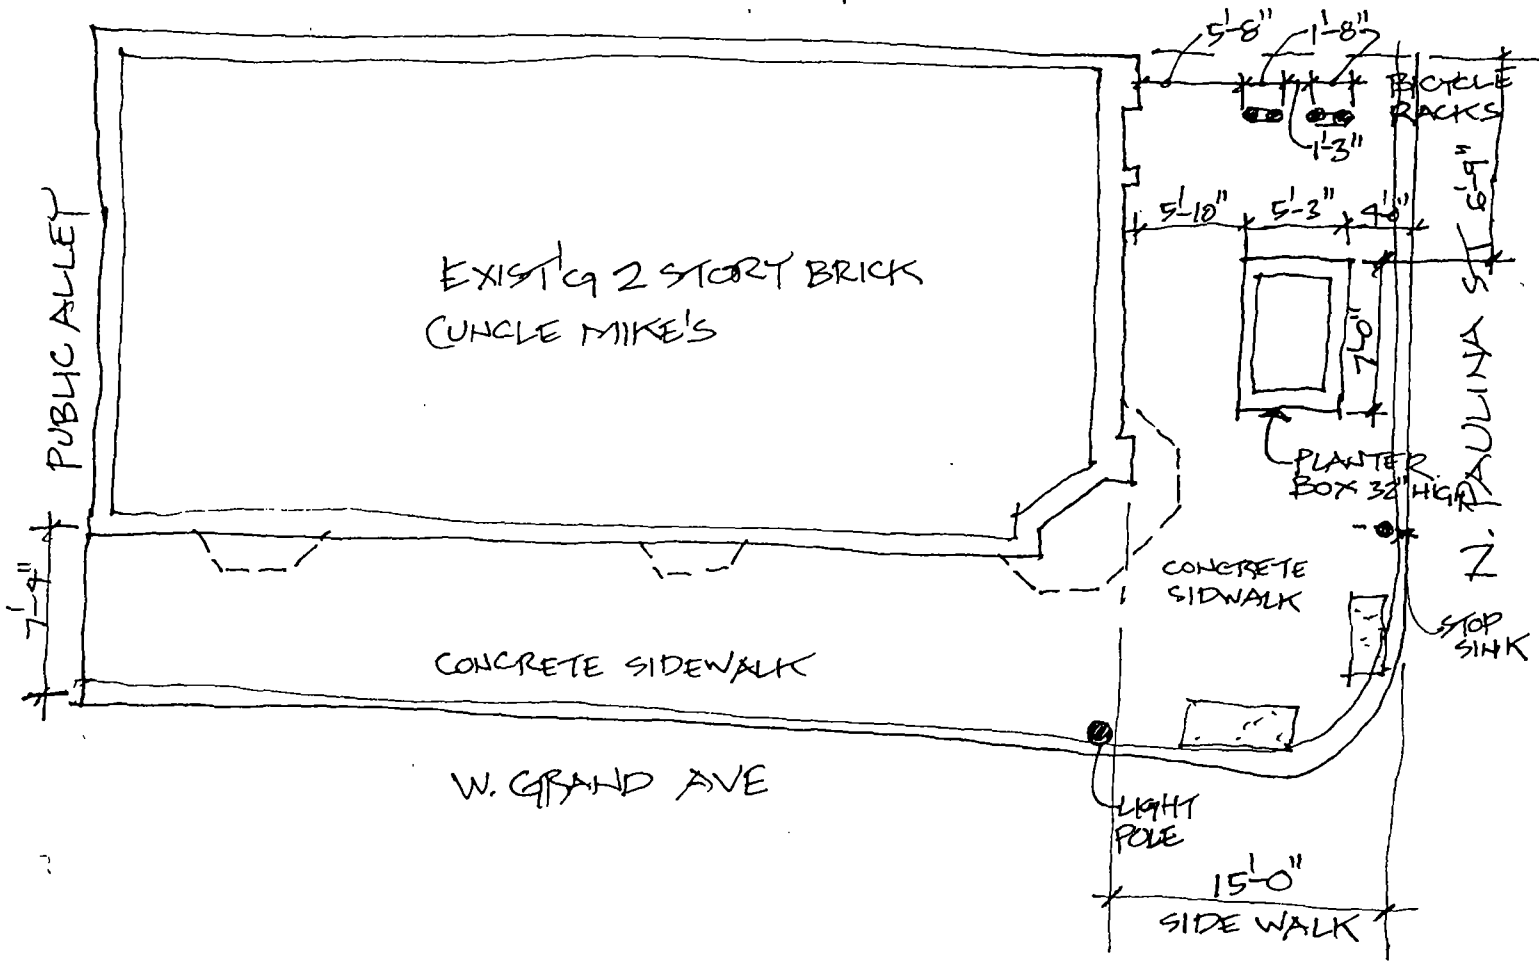 5'-8"
1'-8"
BICYCLE
RACKS
1'-3"
6'-9"
5'-10"
5'-3"
4'-0"
PUBLIC ALLEY
EXIST'G 2 STORY BRICK
CUNCLE MIKE'S
7'-0"
N. PAULINA ST
PLANTER
BOX 32" HIGH
CONCRETE
SIDWALK
STOP
SINK
7'-9"
CONCRETE SIDEWALK
W. GRAND AVE
LIGHT
POLE
15'-0"
SIDE WALK